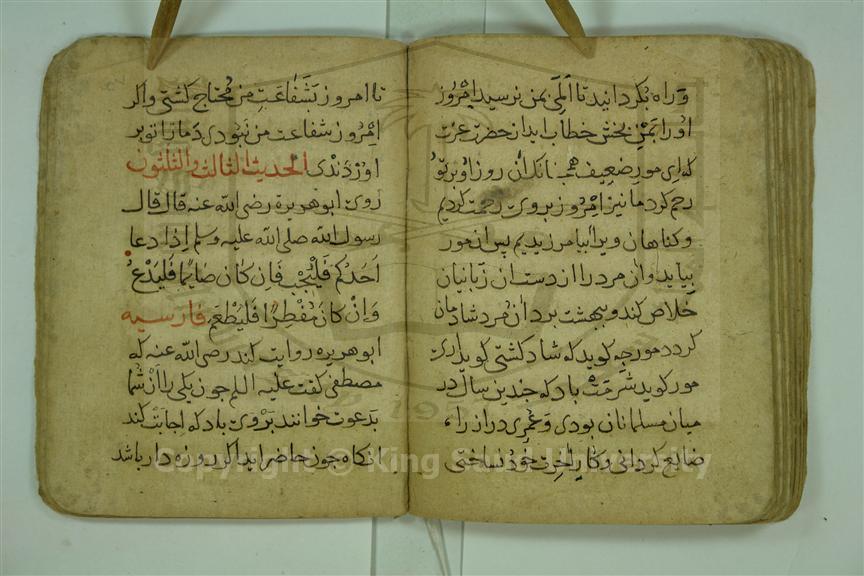 وراه بگردانید تا المی بمن نرسید امروز
اورا بمن بخش خطاب اید از حضرت عزت
که ای مور ضعیف همچنانکه آن روز او بر تو
رحم کرد ما نیز امروز بروی رحمت کردیم
وگناهان ویرا بیامرزیدیم پس ان مور
بیاید وان مرد را از دست ان زبانیان
خلاص کند و ببهشت برد آن مرد شادمان
کردد مورچه کوید که شاد کشتی کوید اری
مور کوید شرمت باد که چندین سال در
میان مسلمانان بودی وعمری دراز را
ضایع کردانی وکار اخرت خود نساختی
تا امروز بشفاعت من محتاج کشتی واکر
امروز شفاعت من نبودی دمار از تو بر
اوردندی الحدیث الثالث والثلثون
روی ابو هریرة رضی الله عنه قال قال
رسول الله صلی الله علیه وسلم اذا دعا
احدکم فلیجب فان کان صایما فلیدع
وان کان مفطرا فلیطعم فارسیه
ابو هریره روایت کند رضی الله عنه که
مصطفی کفت علیه السلم چون یکی را از شما
بدعوت خوانند بروی باد که اجابت کند
انکاه چون حاضر اید اکر روزه دار باشد
Copyright © King Saud University